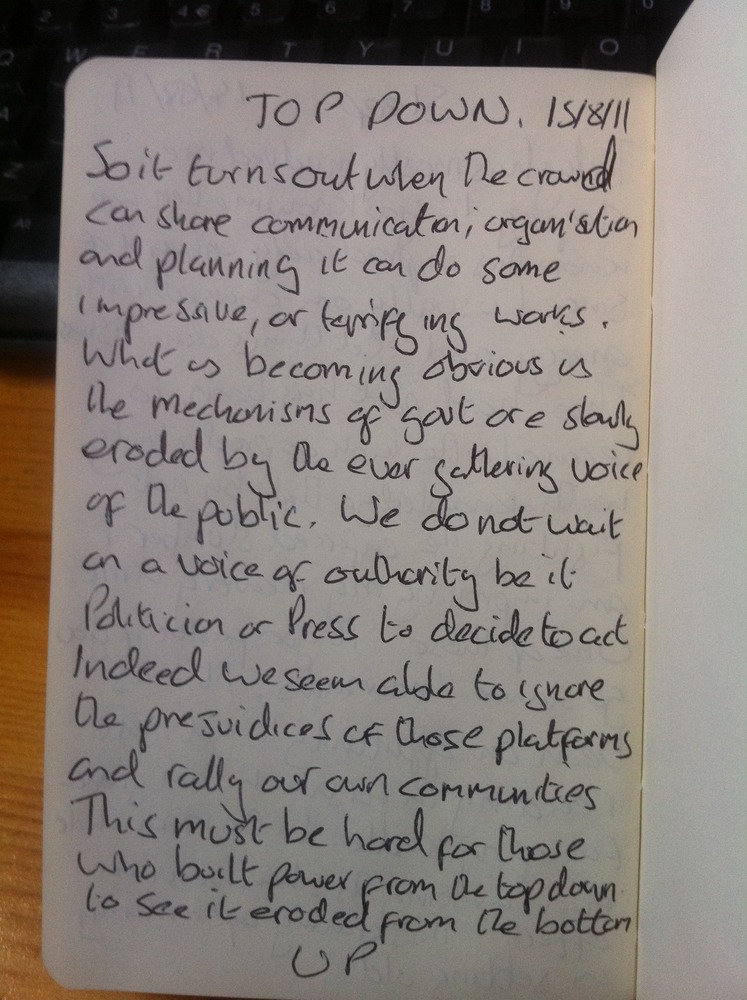 2 3 4 € 5 6 7 8 9 0
Q W E R T Y U I O
A
Z
Alt
TOP DOWN. 15/8/11
So it turns out when the crowd
can share communication, organisation
and planning it can do some
impressive, or terrifying works.
What is becoming obvious is
the mechanisms of govt are slowly
eroded by the ever gathering voice
of the public. We do not wait
on a voice of authority be it
Politician or Press to decide to act
Indeed we seem able to ignore
the prejuidices of those platforms
and rally our own communities
This must be hard for those
who built power from the top down
to see it eroded from the bottom
UP